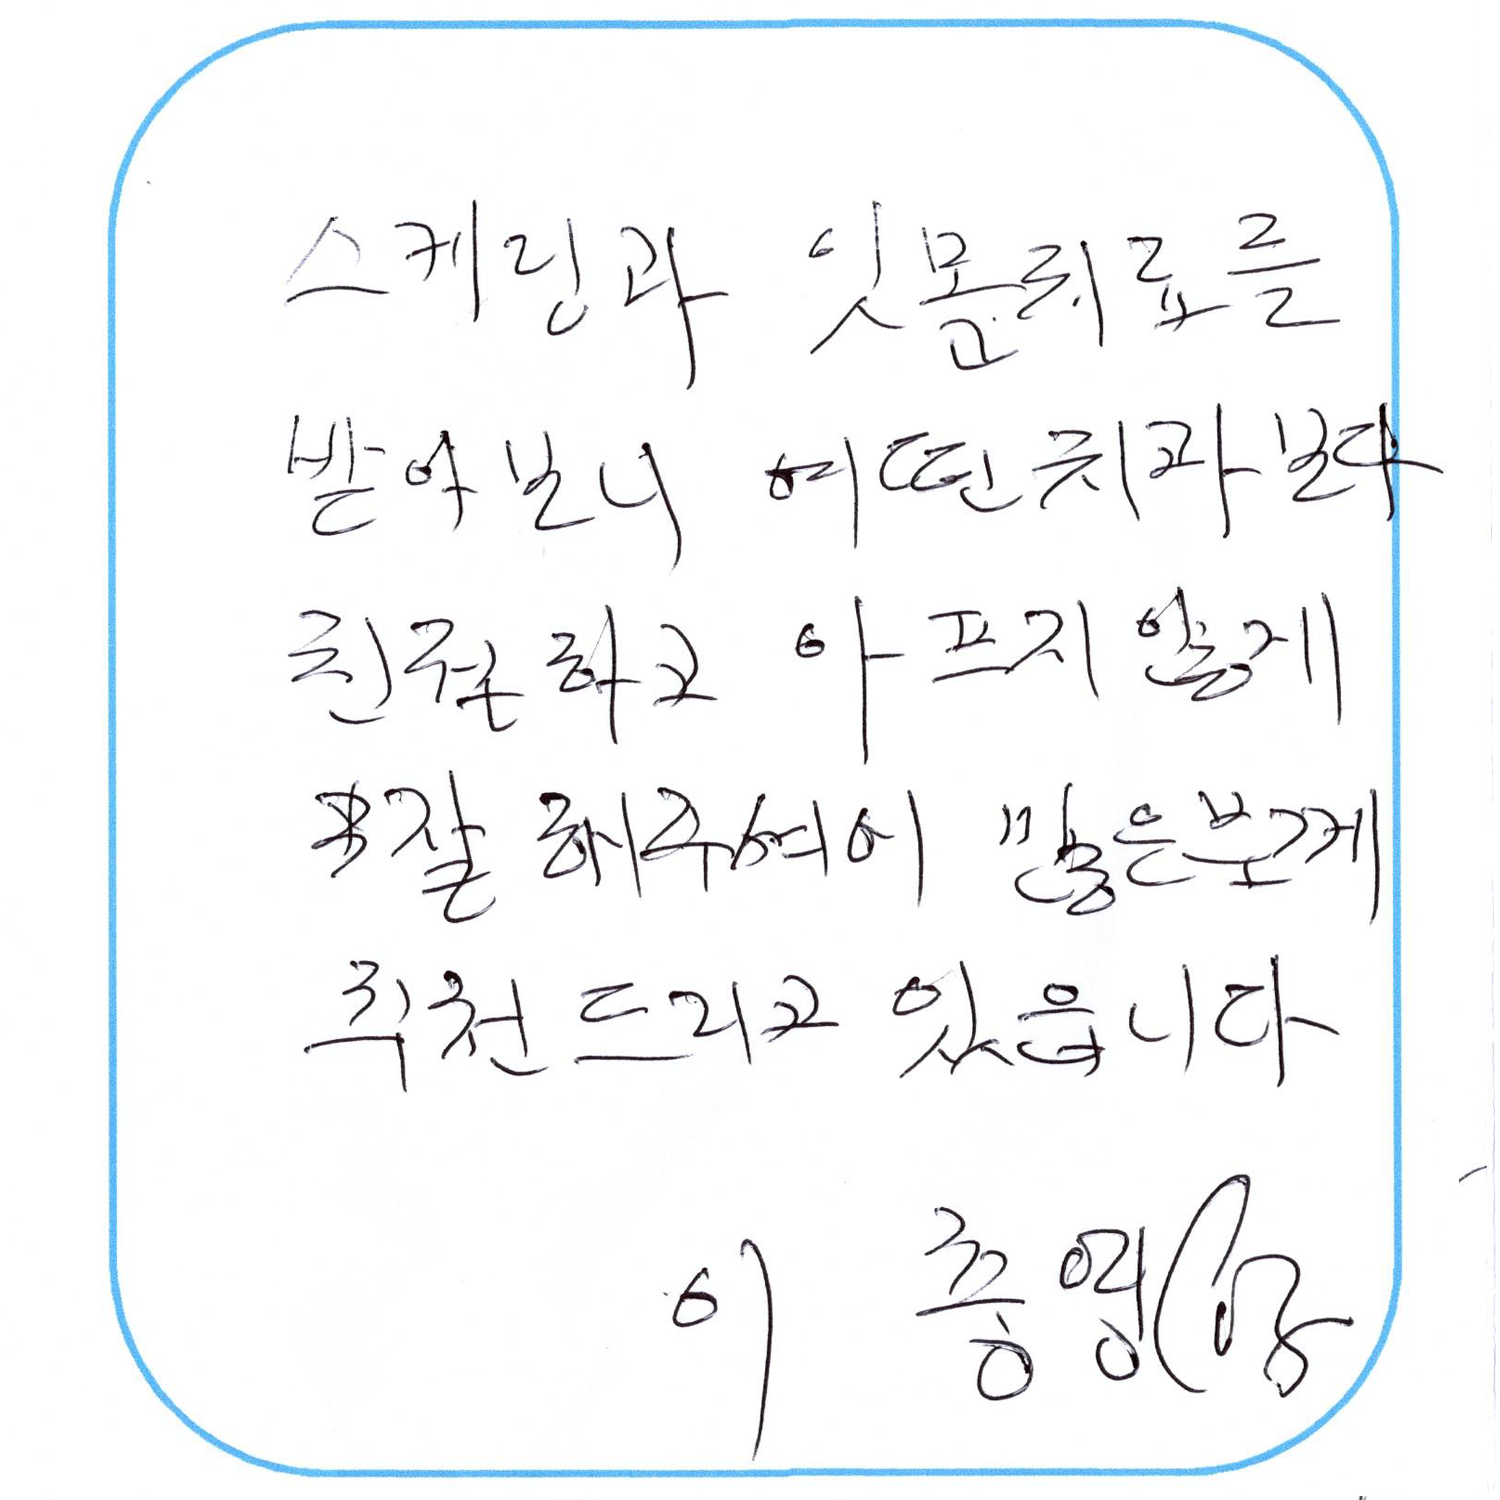 스케링과 잇몸치료를
받아보니 어떤치과보다
친절하고 아프지 않게
잘 해주셔어 많은분게
추천드리고 있읍니다
이 충영